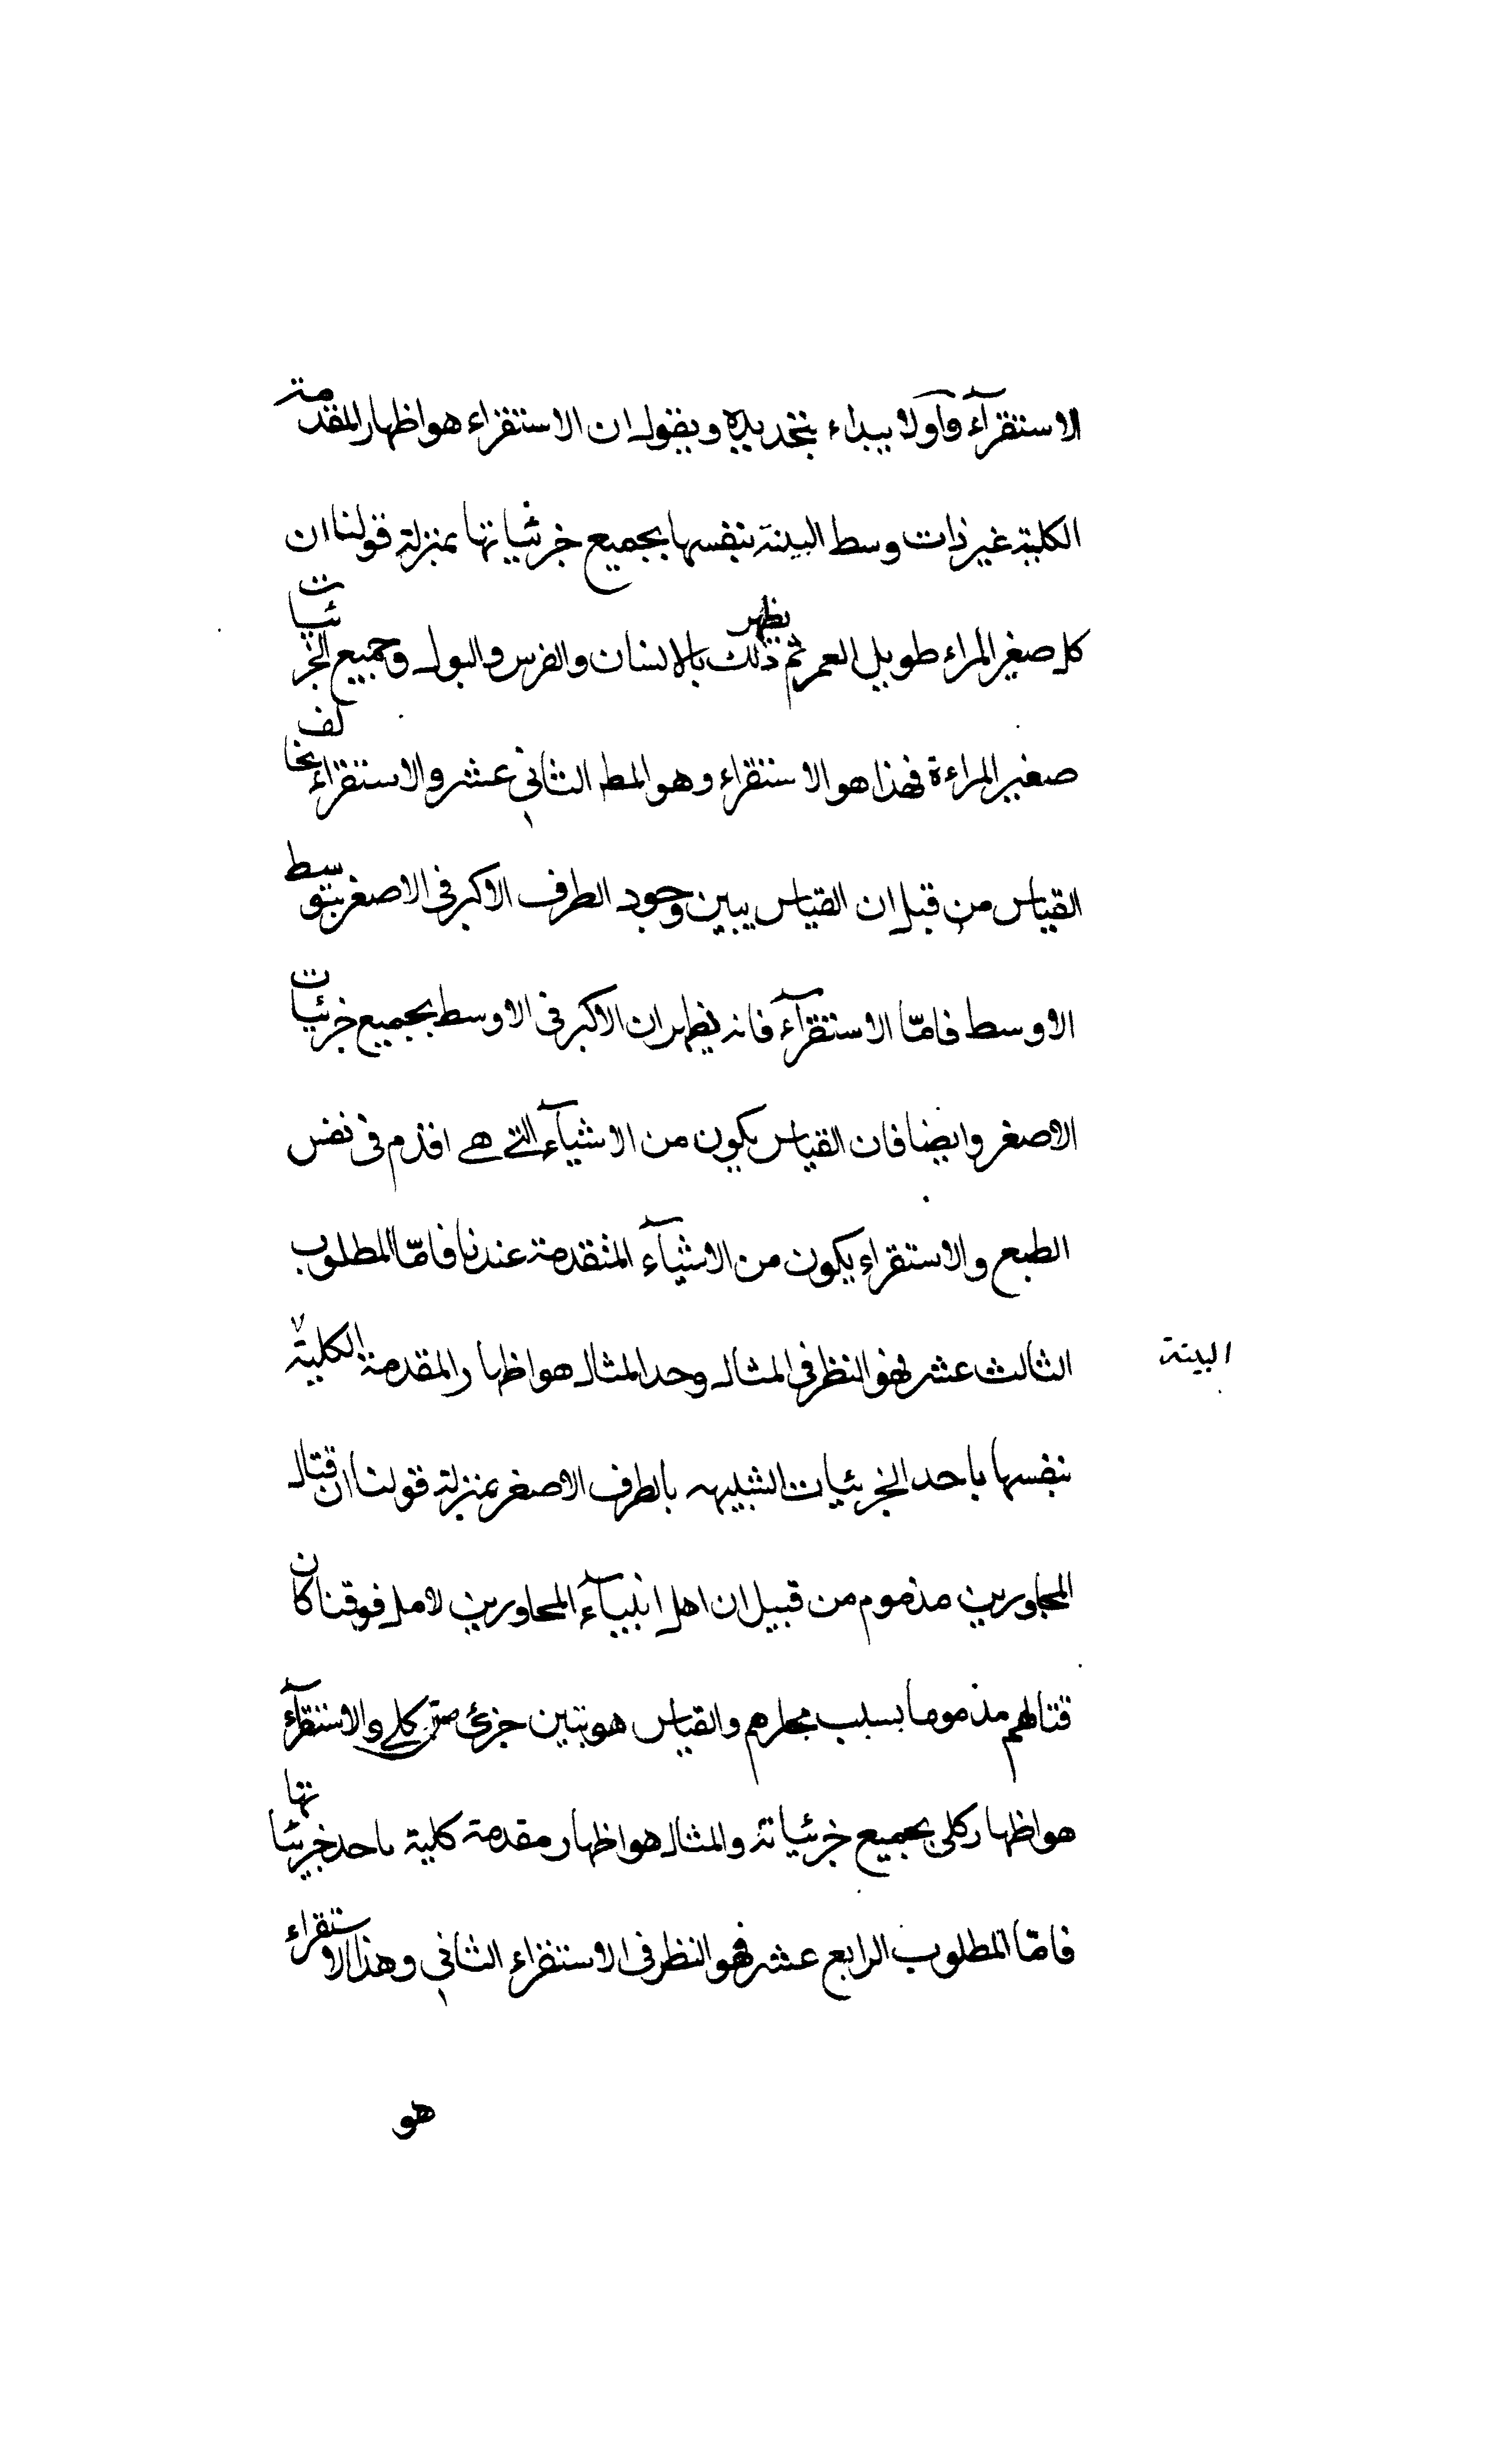 الاستقرآء وآولا يبداء بتخديده ويقول ان الاستقراء هو اظهار المقدمة
الكلية غير ذات وسط البينة بنفسها بجميع خرئياتها بمنزلة قولنا ان
كل صغير المراء طويل العمر ثم يظهر ذلك بالانسان والفرس والبول وجميع الخرئيات
صغير المراءة فهذا هو الاستقراء وهو المط الثاني عشر والاستقراء يخالف
القياس من قبل ان القياس يبين وجود الطرف الاكبر في الاصغر بتوسط
الاوسط فامّا الاستقرآء فانه يظهر ان الاكبر في الاوسط بجميع خرئيات
الاصغر وايضا فان القياس يكون من الاشيآء التے هے اقدم في نفس
الطبع والاستقراء يكون من الاشيآء المتقدمة عندنا فامّا المطلوب
الثالث عشر فهو النظر في المثال وحد المثال هو اظهار المقدمة الكلية
البينة
بنفسها باحد الخرئيات الشبيهه بالطرف الاصغر بمنزلة قولنا ان قتال
المجاورين مذموم من قبيل ان اهل انبيآء المحاورين لامل فوقنا كان
قتالهم مذموما بسبب مجارهم والقياس هو تبين جزئ من كلے والاستقرآء
هو اظهار كلى بجميع خرئياته والمثال هو اظهار مقدمة كلية باحد خرئياتها
فامّا المطلوب الرابع عشر فهو النظر في الاستقراء الثاني وهذا الاستقراء
هو